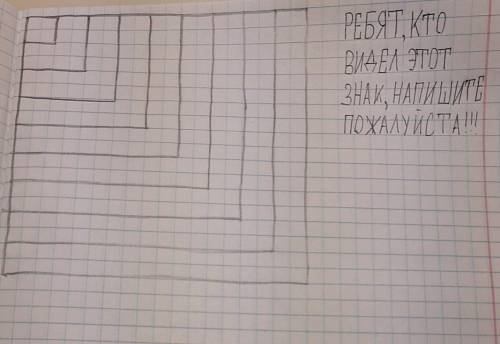 РЕБЯТ, КТО
ВИДЕЛ ЭТОТ
ЗНАК, НАПИШИТЕ
ПОЖАЛУЙСТА!!!